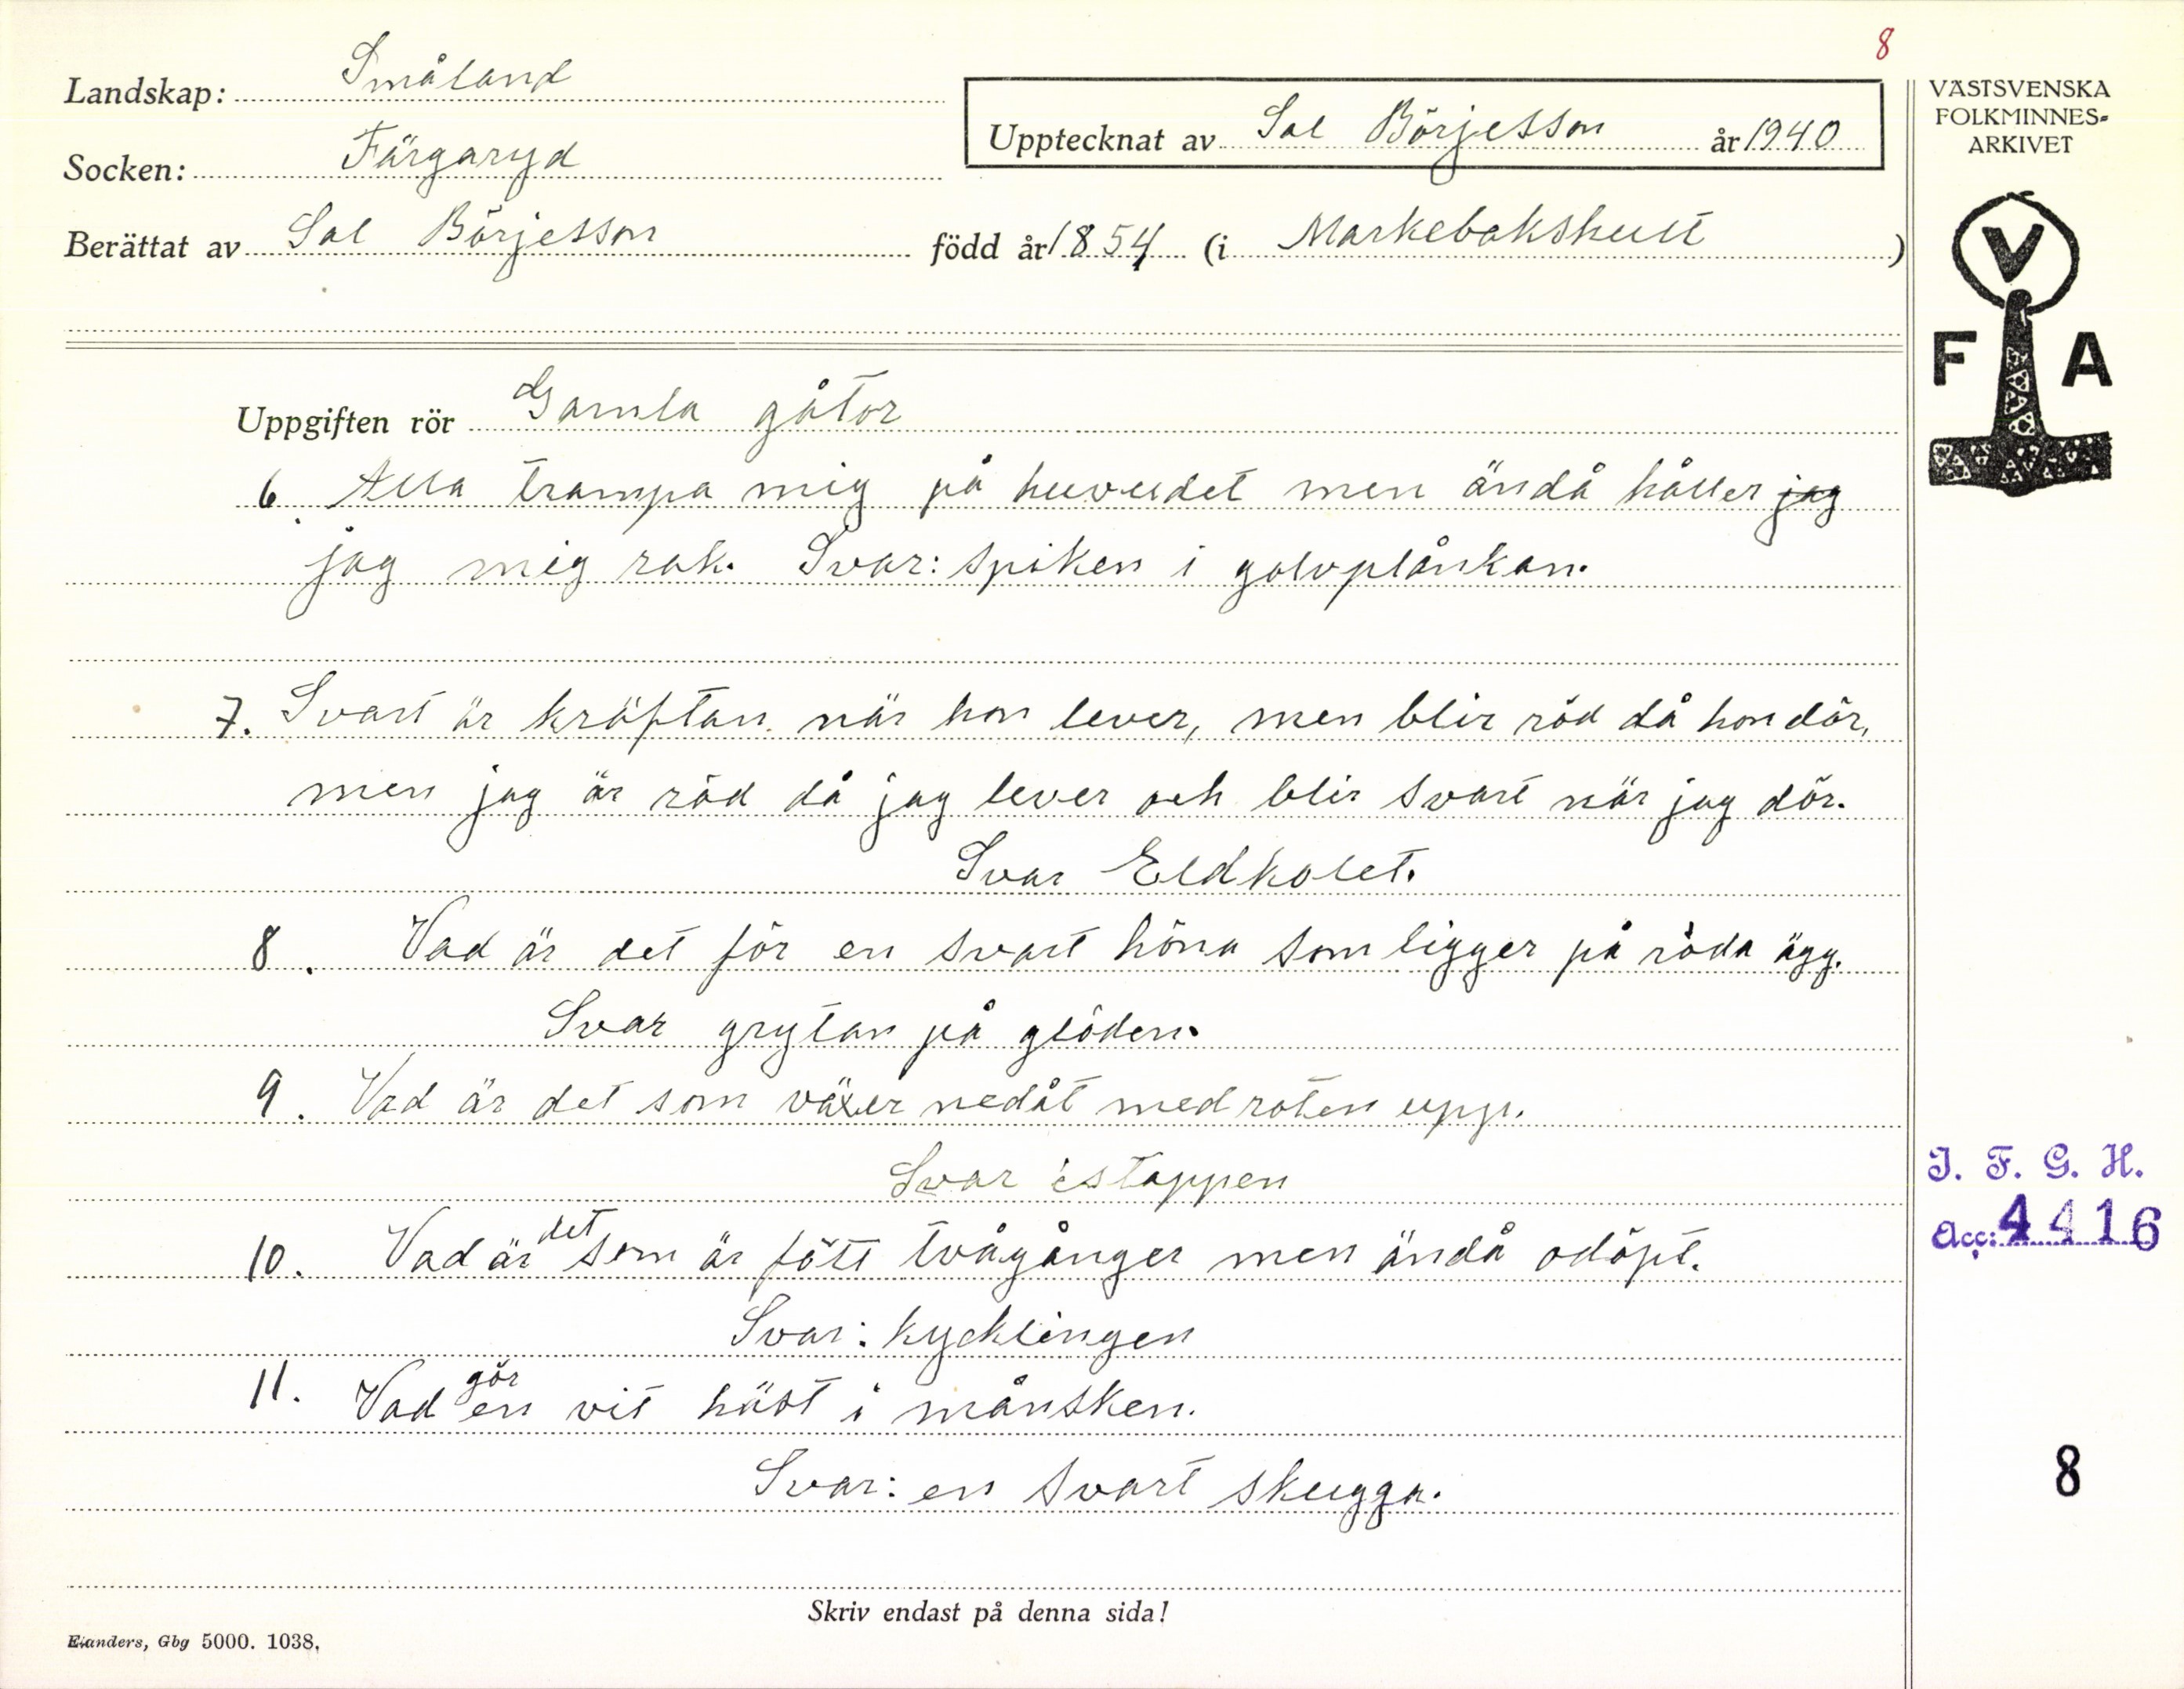 8
Landskap: Småland
Socken: Färgaryd
Upptecknat av Sal Börjesson år 1940
Berättat av Sal Börjesson född år 1854 (i Markebokshult)
VÄSTSVENSKA
FOLKMINNES-
ARKIVET
V
F A
Uppgiften rör Gamla gåtor
6. Alla trampa mig på huvudet men ändå håller jag
jag mig rak. Svar: Spiken i golvplånkan.
7. Svart är kräftan när hon lever, men blir röd då hon dör,
men jag är röd då jag lever och blir svart när jag dör.
Svar Eldkolet.
8. Vad är det för en svart höna som ligger på röda ägg.
Svar grytan på glöden.
9. Vad är det som växer nedåt med roten upp.
Svar istappen
10. Vad är det som är fött tvågånger men ändå odöpt.
Svar: kycklingen
11. Vad gör en vit häst i månsken.
Svar: en svart skugga.
I. F. G. H.
Acc: 4416
8
Skriv endast på denna sida!
Elanders, Gbg 5000. 1038.